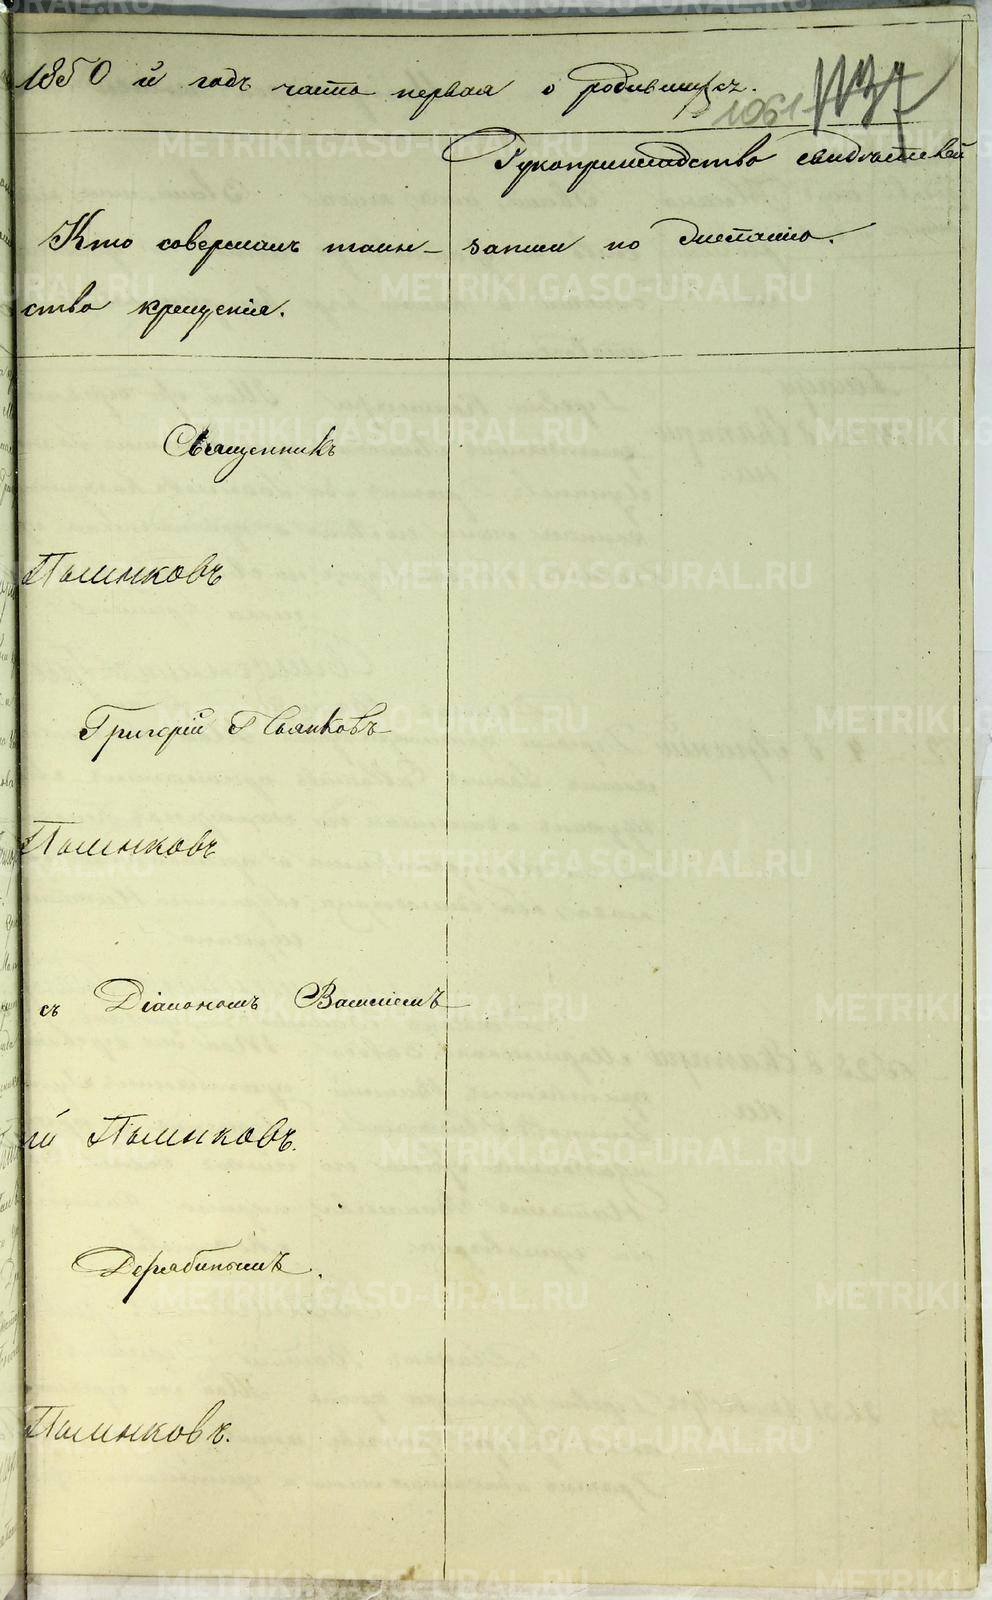 1850 й годъ часть первая о родившихся.
1061
1137
Кто совершалъ таин-
ство крещенія.
Рукоприкладство свидѣтелей
записи по желанію.
Священникъ
Пьянковъ
Григорій Пьянковъ
Пьянковъ
съ Діакономъ Василіемъ
ій Пьянковъ.
Дерябинымъ.
Пьянковъ.
METRIKI.GASO-URAL.RU